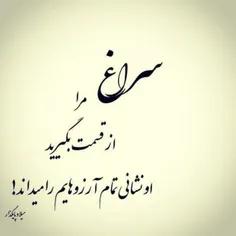 سراغ
مرا
از قسمت بگیرید
او نشانی تمام آرزوهایم را میداند!